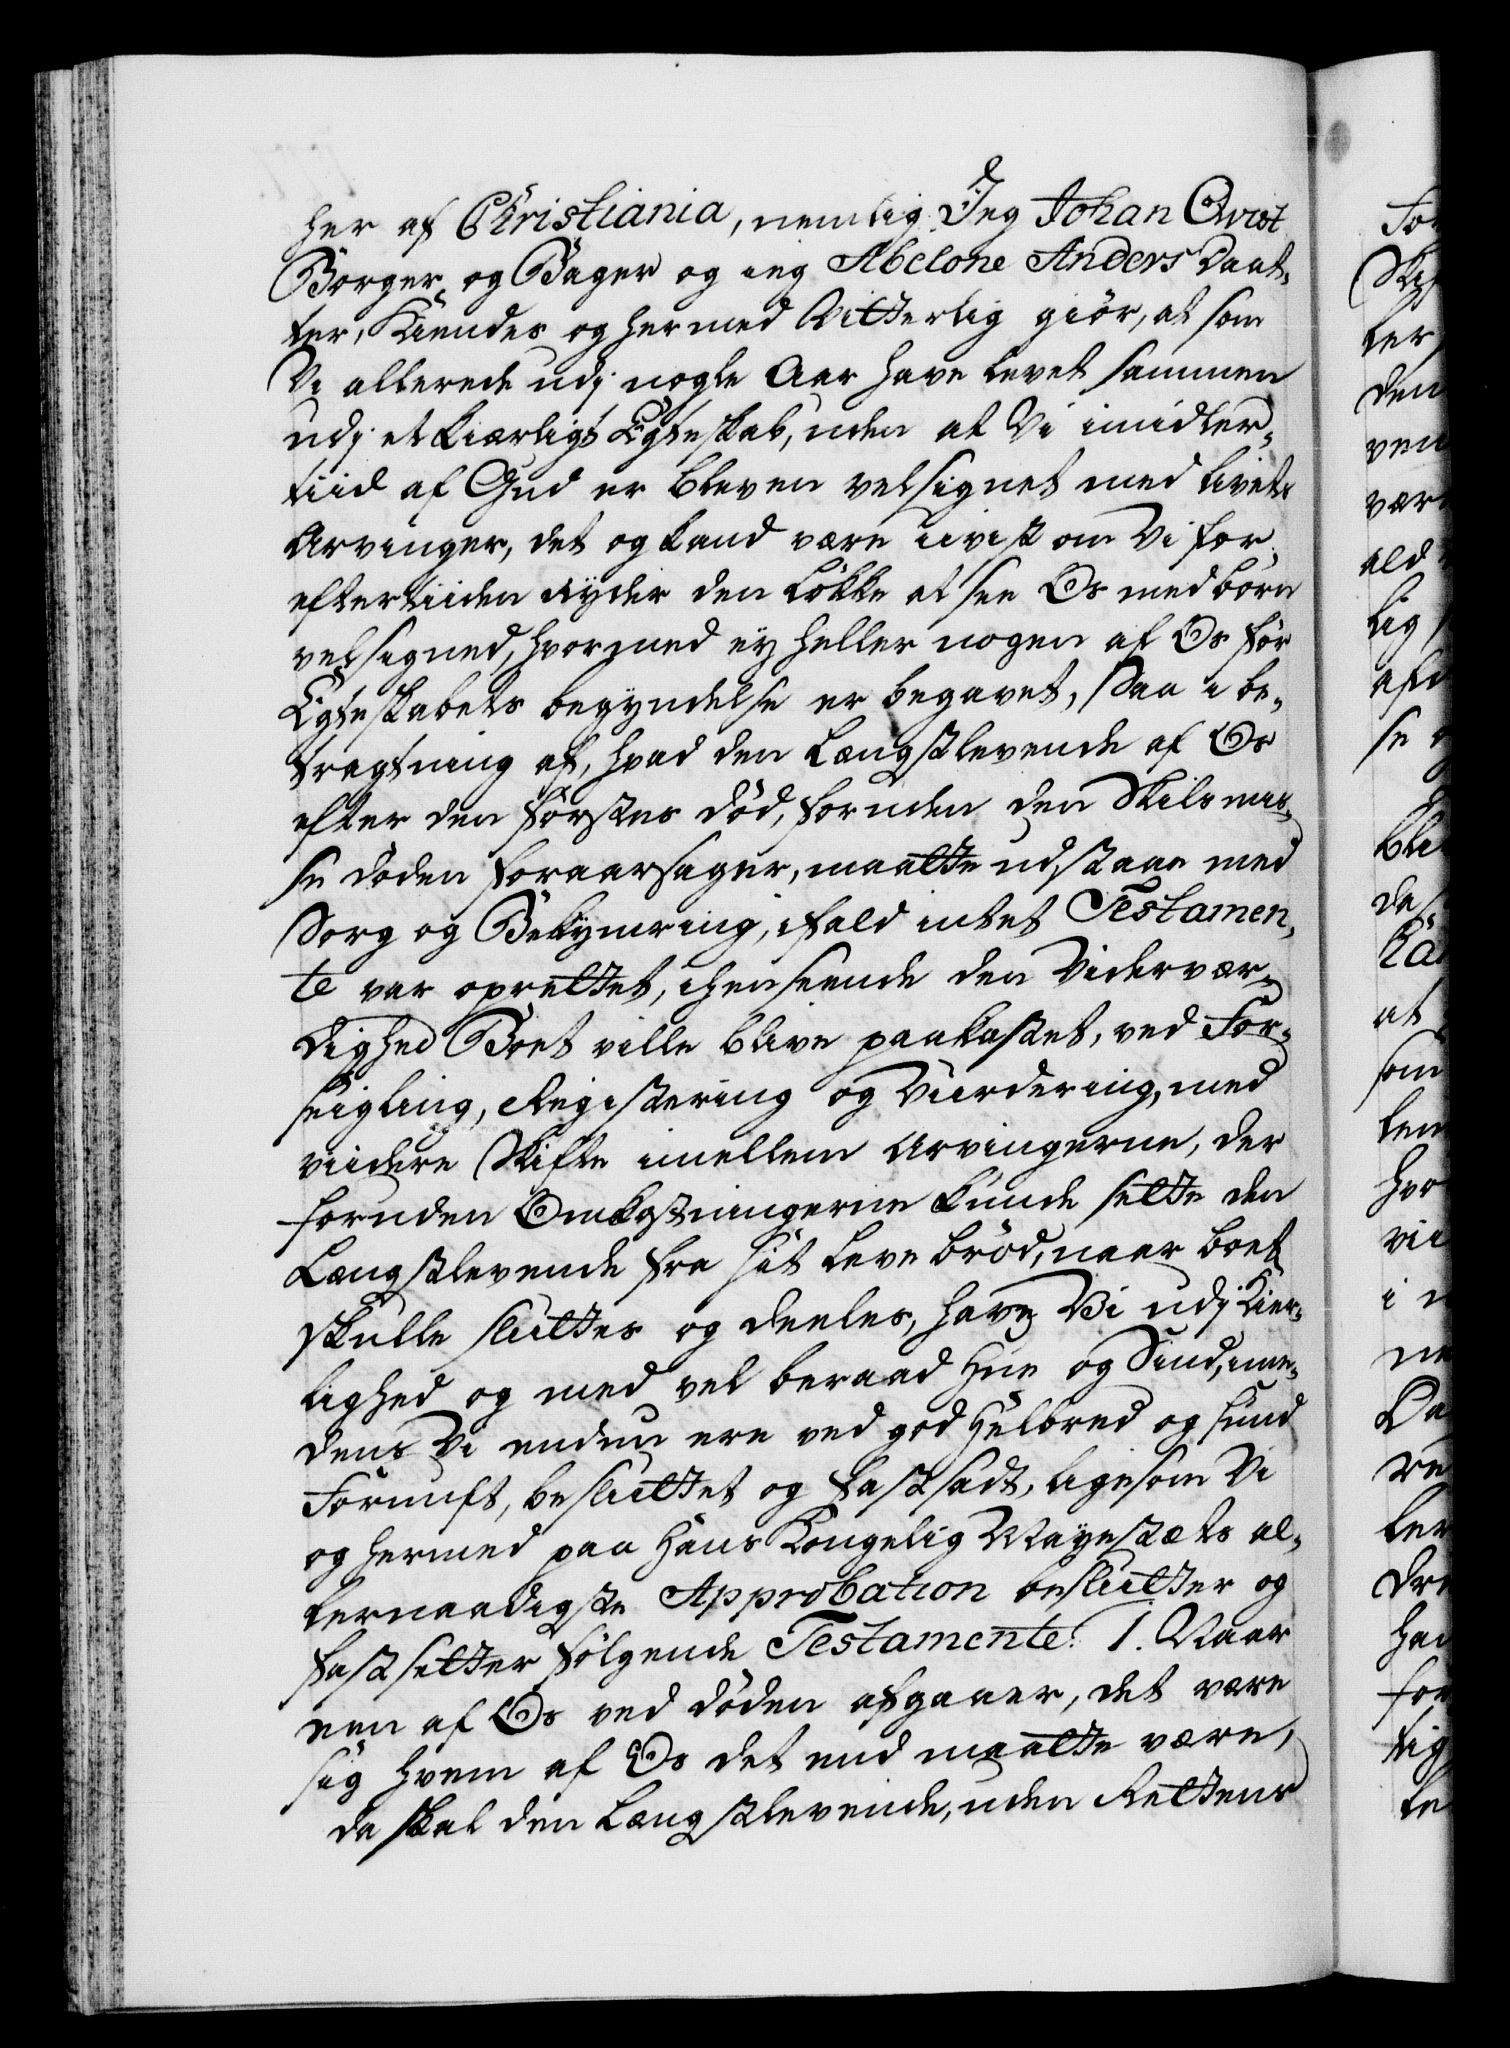 her af Christiania, nemlig Jeg Johan Qvist
Borger og Bager og ieg Abelone Anders Daat-
ter, Kiendes og hermed Vitterlig giör, at som
Vi allerede udj nogle Aar have levet sammen
udj et kiærligt Egteskab, uden at Vi imidler-
tiid af Gud er bleven velsignet med livets
Arvinger, det og kand være uvist om Vi for
eftertiiden nyder den Lökke at see Os med börn
velsigned, hvormed ey heller nogen af Os för
Egteskabets begyndelse er begavet, Saa i be-
tragtning af, hvad den Længstlevende af Os
efter den förstes död, foruden den Skilsmis-
se döden foraarsager, maatte udstaae med
Sorg og Bekymring, ifald intet Testamen-
te var oprettet, i henseende den Vidervær-
dighed Boet ville blive paakastet, ved For-
seigling, Registering og Vurdering, med
viidere Skifte imellem Arvingerne, der
foruden Omkostningerne kunde sette den
Længstlevende fra sit leve bröd, naar boet
skulle sluttes og deeles, have Vi udj Kier-
lighed og med vel beraad Hue og Sind, ime-
dens Vi endnu ere ved god Helbred og sund
Fornuft, besluttet og fastsadt, ligesom Vi
og hermed paa Hans Kongelig Mayestæts al-
lernaadigste Approbation beslutter og
fastsetter fölgende Testamente: 1. Naar
een af Os ved döden afgaaer, det være
sig hvem af Os det end maatte være,
da skal den Længstlevende, uden Rettens